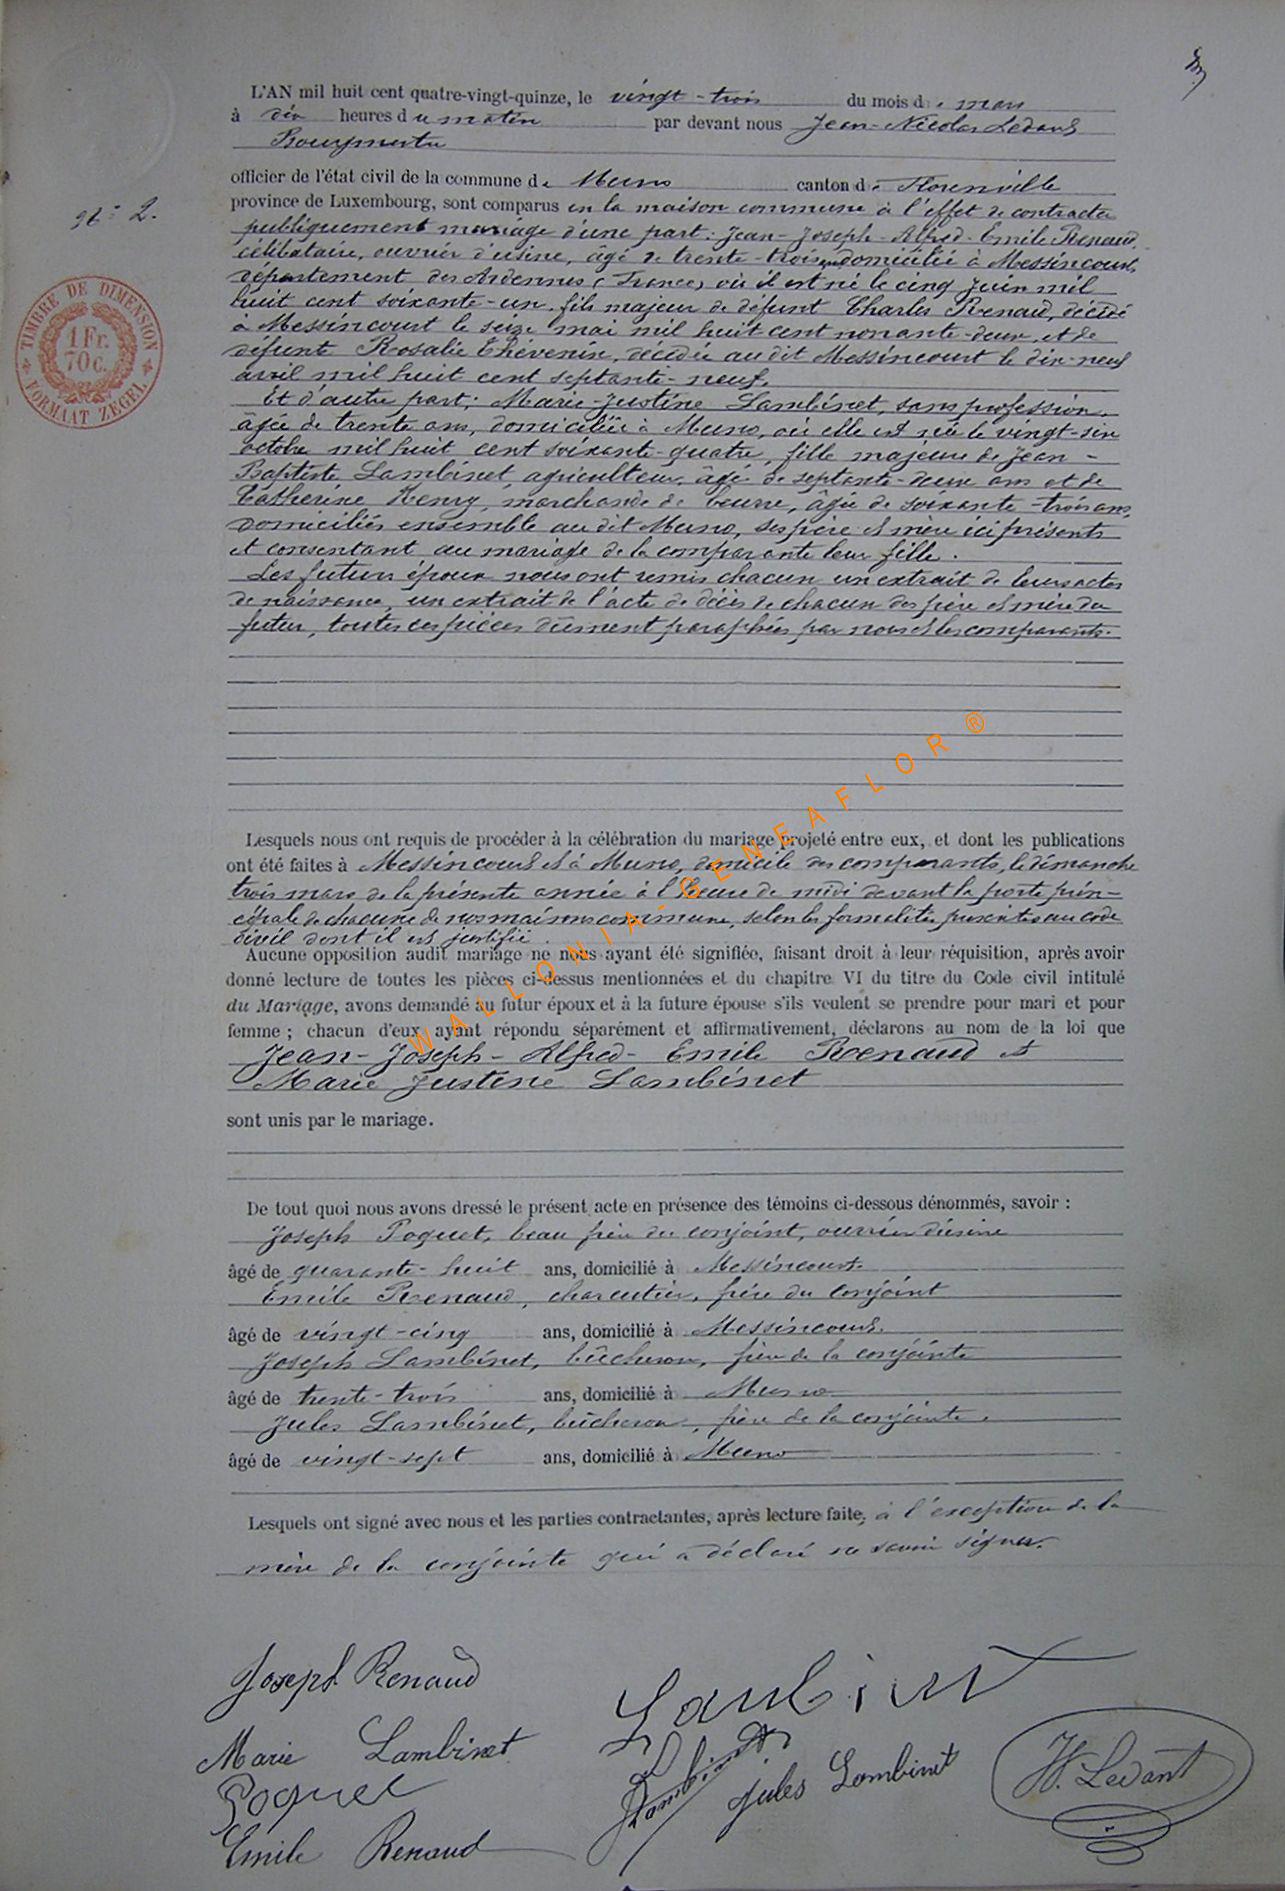 L'AN mil huit cent quatre-vingt-quinze, le vingt-trois du mois de mars
à dix heures du matin par devant nous Jean-Nicolas Ledant
Bourgmestre
officier de l'état civil de la commune de Muno canton de Florenville
province de Luxembourg, sont comparus en la maison commune à l'effet de contracter
Nº 2.
publiquement mariage d'une part: Jean-Joseph-Alfred-Emile Renaud,
célibataire, ouvrier d'usine, âgé de trente-trois ans domicilié à Messincourt,
département des Ardennes (France) où il est né le cinq juin mil
huit cent soixante-un, fils majeur de défunt Charles Renaud, décédé
à Messincourt le seize mai mil huit cent nonante-deux, et de
défunte Rosalie Thévenin, décédée au dit Messincourt le dix-neuf
avril mil huit cent septante-neuf.
Et d'autre part; Marie-Justine Lambinet, sans profession,
âgée de trente ans, domiciliée à Muno, où elle est née le vingt-six
octobre mil huit cent soixante-quatre, fille majeure de Jean-
Baptiste Lambinet agriculteur, âgé de septante-deux ans et de
Catherine Henry, marchande de beurre, âgée de soixante-trois ans,
domiciliés ensemble au dit Muno, ses père et mère ici présents
et consentant au mariage de la comparante leur fille.
Les futurs époux nous ont remis chacun un extrait de leurs actes
de naissance, un extrait de l'acte de décès de chacun des père et mère du
futur, toutes ces pièces dûment paraphées par nous et les comparants.
TIMBRE DE DIMENSION
1 Fr.
70 c.
FORMAAT ZEGEL
Lesquels nous ont requis de procéder à la célébration du mariage projeté entre eux, et dont les publications
ont été faites à Messincourt et à Muno, domicile des comparants, le dimanche
trois mars de la présente année à l'heure de midi devant la porte prin-
cipale de chacune de nos maisons commune, selon les formalités prescrites au code
civil dont il est justifié.
Aucune opposition audit mariage ne nous ayant été signifiée, faisant droit à leur réquisition, après avoir
donné lecture de toutes les pièces ci-dessus mentionnées et du chapitre VI du titre du Code civil intitulé
du Mariage, avons demandé au futur époux et à la future épouse s'ils veulent se prendre pour mari et pour
femme ; chacun d'eux ayant répondu séparément et affirmativement, déclarons au nom de la loi que
Jean-Joseph-Alfred-Emile Renaud et
Marie Justine Lambinet
sont unis par le mariage.
WALLONIA-GENEAFLOR ®
De tout quoi nous avons dressé le présent acte en présence des témoins ci-dessous dénommés, savoir :
Joseph Poquet, beau frère du conjoint, ouvrier d'usine
âgé de quarante-huit ans, domicilié à Messincourt.
Emile Renaud, charcutier, frère du conjoint
âgé de vingt-cinq ans, domicilié à Messincourt.
Joseph Lambinet, bûcheron, frère de la conjointe
âgé de trente-trois ans, domicilié à Muno
Jules Lambinet, bûcheron, frère de la conjointe.
âgé de vingt-sept ans, domicilié à Muno
Lesquels ont signé avec nous et les parties contractantes, après lecture faite, à l'exception de la
mère de la conjointe qui a déclaré ne savoir signer.
Joseph Renaud
Lambinet
Marie Lambinet
Lambinet
Jules Lambinet
Ledant
Poquet
Emile Renaud